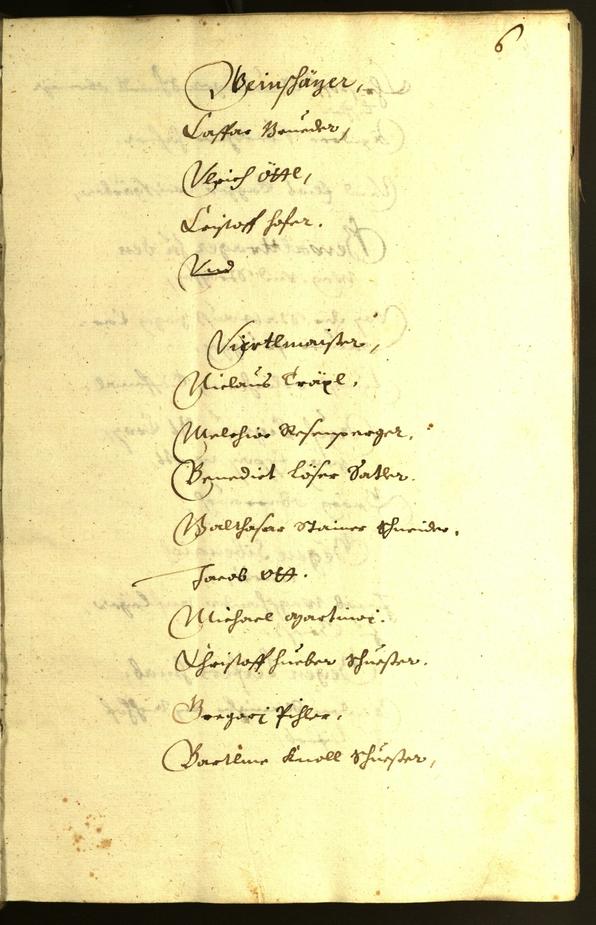 6
Weinschäzer,
Caspar Brueder,
Vlrich Öttl,
Cristoff Hofer.
Vnd
Viertlmaister,
Niclaus Träpl,
Melchior Rosenperger,
Benedict Löser Satler.
Balthasar Stainer Schneider,
Jacob Ott.
Michael Martinoi.
Christoff Hueber Schuester.
Gregorj Pihler,
Bartlme Knoll Schuester,